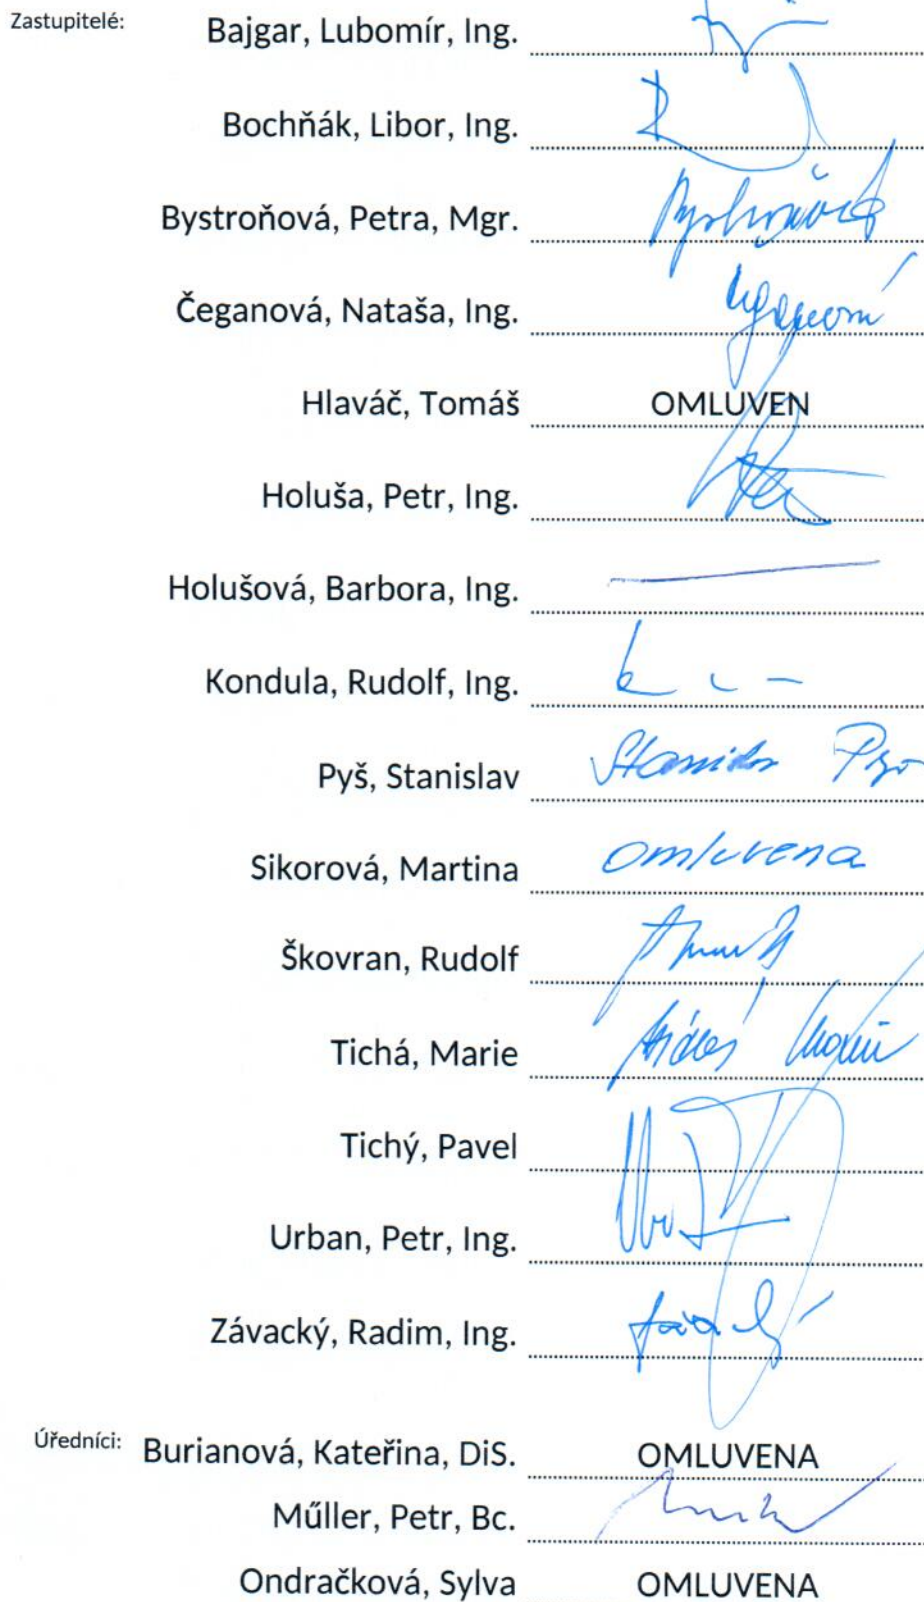 Zastupitelé: Bajgar, Lubomír, Ing.
Bochňák, Libor, Ing.
Bystroňová, Petra, Mgr.
Čeganová, Nataša, Ing.
Hlaváč, Tomáš OMLUVEN
Holuša, Petr, Ing.
Holušová, Barbora, Ing.
Kondula, Rudolf, Ing.
Pyš, Stanislav
Sikorová, Martina omluvena
Škovran, Rudolf
Tichá, Marie
Tichý, Pavel
Urban, Petr, Ing.
Závacký, Radim, Ing.
Úředníci: Burianová, Kateřina, DiS. OMLUVENA
Műller, Petr, Bc.
Ondračková, Sylva OMLUVENA